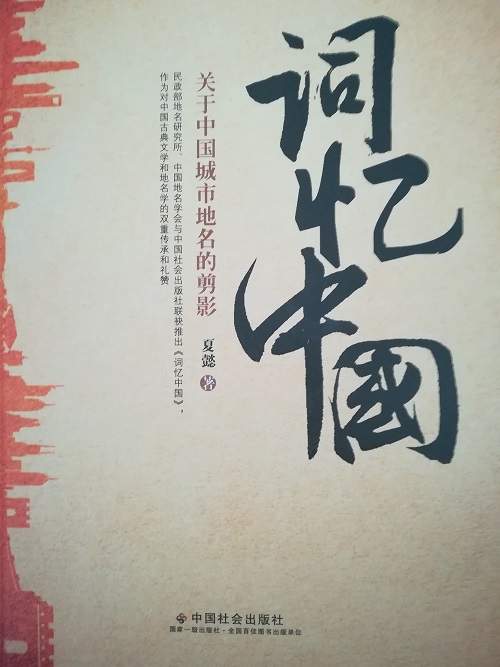 词忆中國
关于中国城市地名的剪影
夏懿 著
民政部地名研究所、中国地名学会与中国社会出版社联袂推出《词忆中国》，
作为对中国古典文学和地名学的双重传承和礼赞
中国社会出版社
国家一级出版社·全国百佳图书出版单位